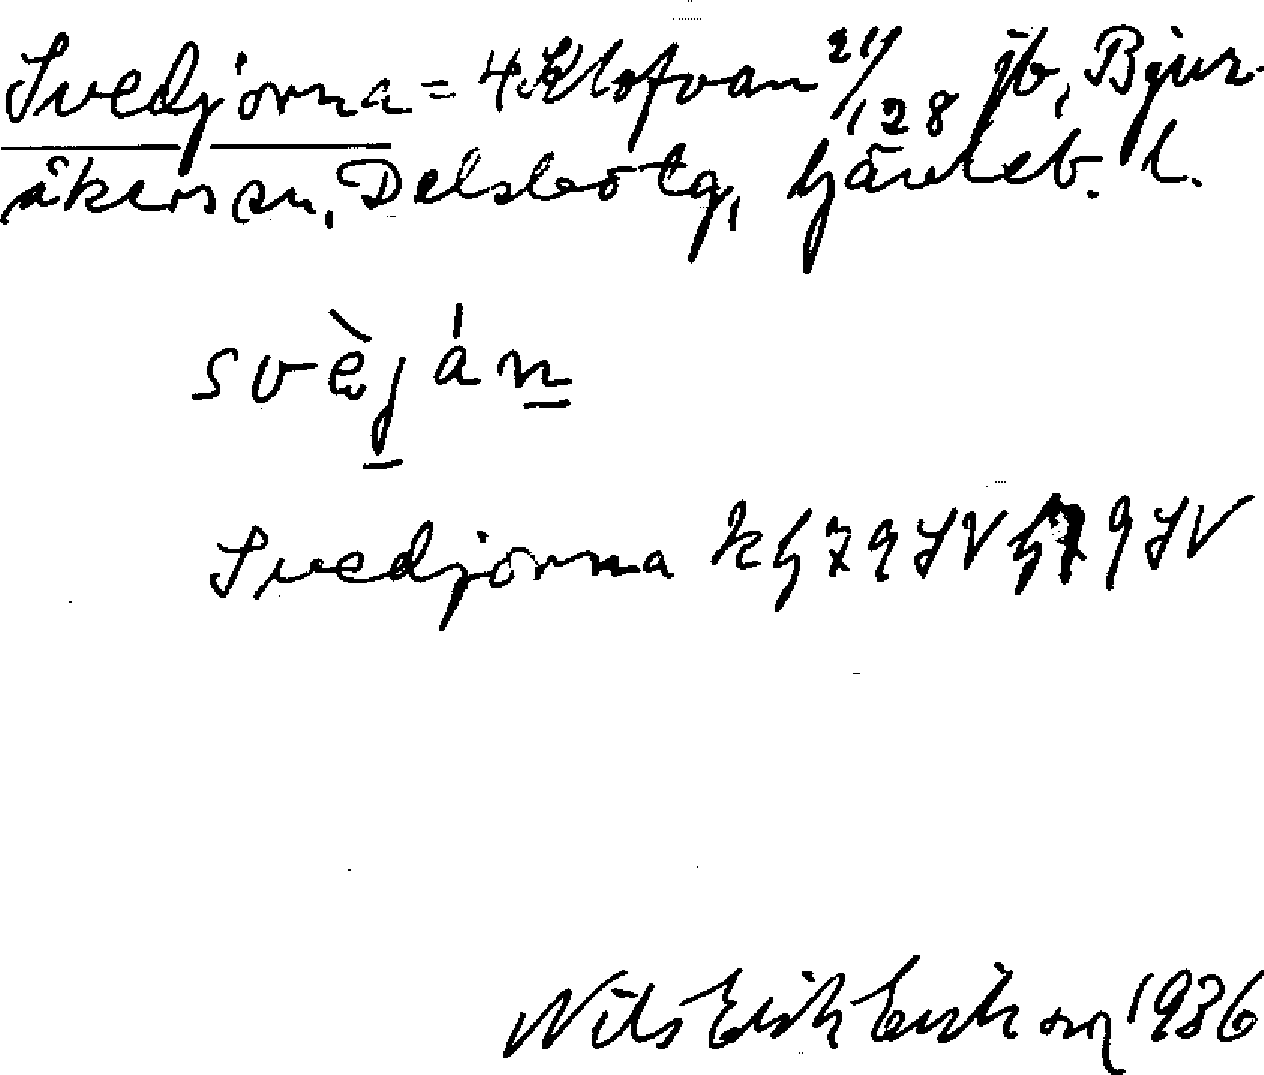 Svedjorna = 4 Klofvan 21/128 jb, Bjur-
åkers sn, Delsbo tg, Gävleb. l.
svèján
Svedjorna k G 79 SV G 79 SV
Nils Erik Eriksson 1936